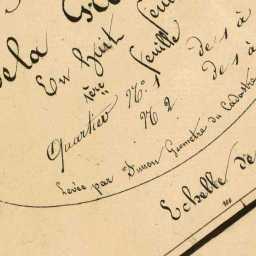 de la
En huit feuilles
1ère feuille
Quartier N° 1 de s à
N 2 de s à
Levée par Dumon Géomètre du Cadastre
Echelle de